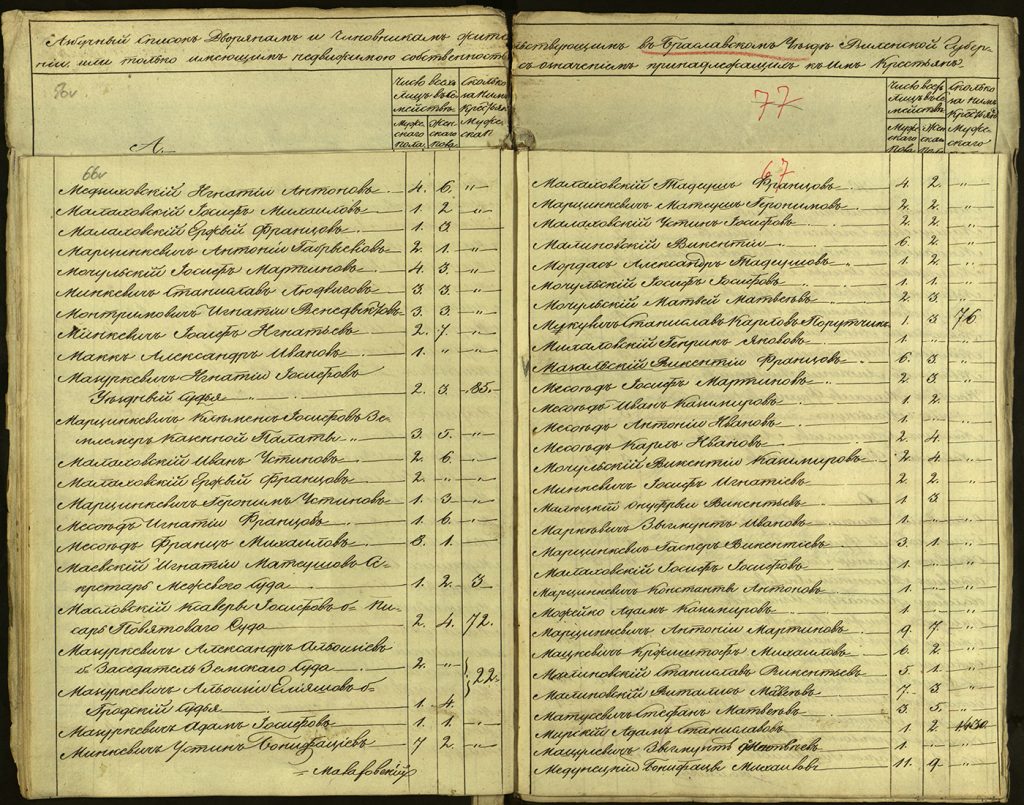 Азбучный Списокъ Дворянамъ и Чиновникамъ жительствующимъ въ Браславскомъ Уѣздѣ Виленской Губер-
ніи или только имеющимъ недвижимою собственность съ означеніемъ принадлежащихъ къ нимъ Крестьянъ
56v
77
А.
66v
67
Медниховскій Игнатій Антоновъ 4. 6. "
Малаховскій Іосифъ Михаиловъ 1. 2 "
Малаховскій Ержый Францовъ 1. 3 "
Марцинкевичъ Антоній Габрыеловъ 2. 1. "
Мочульскій Іосифъ Мартиновъ 4. 3. "
Минкевичъ Станиславъ Людвиговъ 3. 3. "
Монтримовичъ Игнатій Венедыктовъ 3. 3. "
Минкевичъ Іосифъ Игнатьевъ 2. 7. "
Макнъ Александръ Ивановъ 1. " "
Мацуркевичъ Игнатій Іосифовъ
Уѣздный Судья 2. 3. 85.
Марцинкевичъ Клѣменъ Іосифовъ Зе-
млемеръ Казенной Палаты 3. 5. "
Малаховскій Иванъ Устиновъ 2. 6. "
Малаховскій Ержый Францовъ 2. " "
Марцинкевичъ Іеронимъ Устиновъ 1. 3 "
Месоѣдъ Игнатій Францовъ 1. 6. "
Месоѣдъ Францъ Михаиловъ 8. 1. "
Маевскій Игнатій Матеушовъ Се-
кретарь Межевого Суда 1. 2. 3
Масловскій Ксаверы Іосифовъ б. Пи-
сарь Повятоваго Суда 2. 4. 72.
Мацуркевичъ Александръ Альоизіевъ
б. Заседатель Земскаго Суда 2. "
22.
Мацуркевичъ Альоизій Еліяшовъ б.
Гродскій Судья 1. 4.
Мацуркевичъ Адамъ Іосифовъ 1. 1. "
Минкевичъ Устинъ Бонифаціевъ 7 2. "
Малаховскій Тадеушъ Францовъ 4. 2. "
Марцинкевичъ Матеушъ Іеронимовъ 2. 2. "
Малаховскій Устинъ Іосифовъ 2. 2. "
Малиновскій Викентій 6. 2. "
Мордасъ Александръ Тадеушовъ 1. 2. "
Мочульскій Іосифъ Іосифовъ 1. 1. "
Мочульскій Матвей Матвеевъ 2. 3 "
Станиславъ Карловъ Поручикъ 1. 3 76
Михаловскій Генрикъ Якововъ 1. " "
Викентій Францовъ 6. 3. "
Месоѣдъ Іосифъ Мартиновъ 2. 3 "
Месоѣдъ Иванъ Казимировъ 1. 2. "
Месоѣдъ Антоній Ивановъ 1. " "
Месоѣдъ Карлъ Ивановъ 2. 4. "
Мочульскій Викентій Казимировъ 2. 4 "
Минкевичъ Іосифъ Игнатіевъ 2. 2. "
Онуфрый Викентьевъ 1. 3 "
Маркѣвичъ Зыгмунтъ Ивановъ 1. " "
Марцинкевичъ Гасперъ Викентіевъ 3. 1 "
Малаховскій Іосифъ Іосифовъ 1. " "
Марцинкевичъ Константы Антоновъ 1. " "
Можейко Адамъ Казимировъ 1. " "
Марцинкевичъ Антоній Мартиновъ 9. 7. "
Мацкевичъ Крживштофъ Михаиловъ 6. 2. "
Малиновскій Станиславъ Викентьевъ 5. 1. "
Малиновскій Виталисъ 7. 3 "
Матусевичъ Стефанъ Матвеевъ 3. 5. "
Мирскій Адамъ Станиславовъ 1. 2
Зыгмунтъ 1. " "
Бонифацы Михаиловъ 11. 9 "